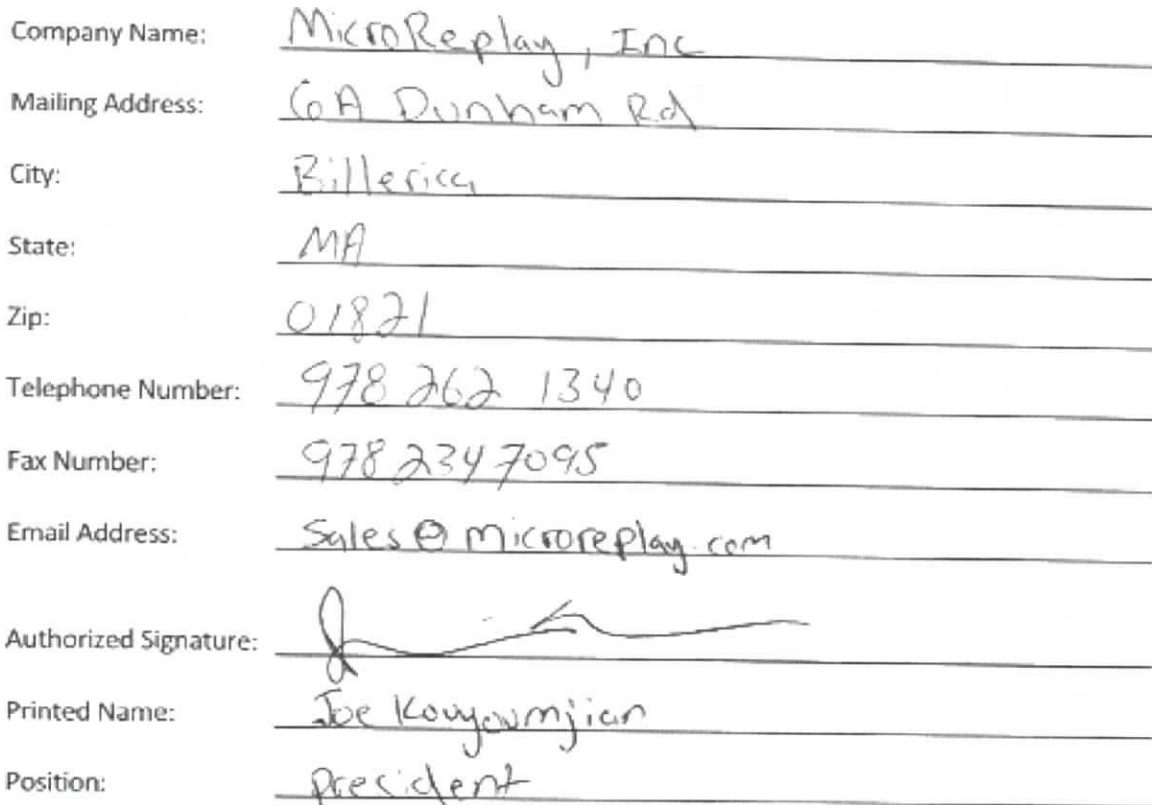 Company Name: MicroReplay, Inc
Mailing Address: 6A Dunham Rd
City: Billerica
State: MA
Zip: 01821
Telephone Number: 978 262 1340
Fax Number: 978 234 7095
Email Address: Sales@microreplay.com
Authorized Signature:
Printed Name: Joe Kouyoumjian
Position: President